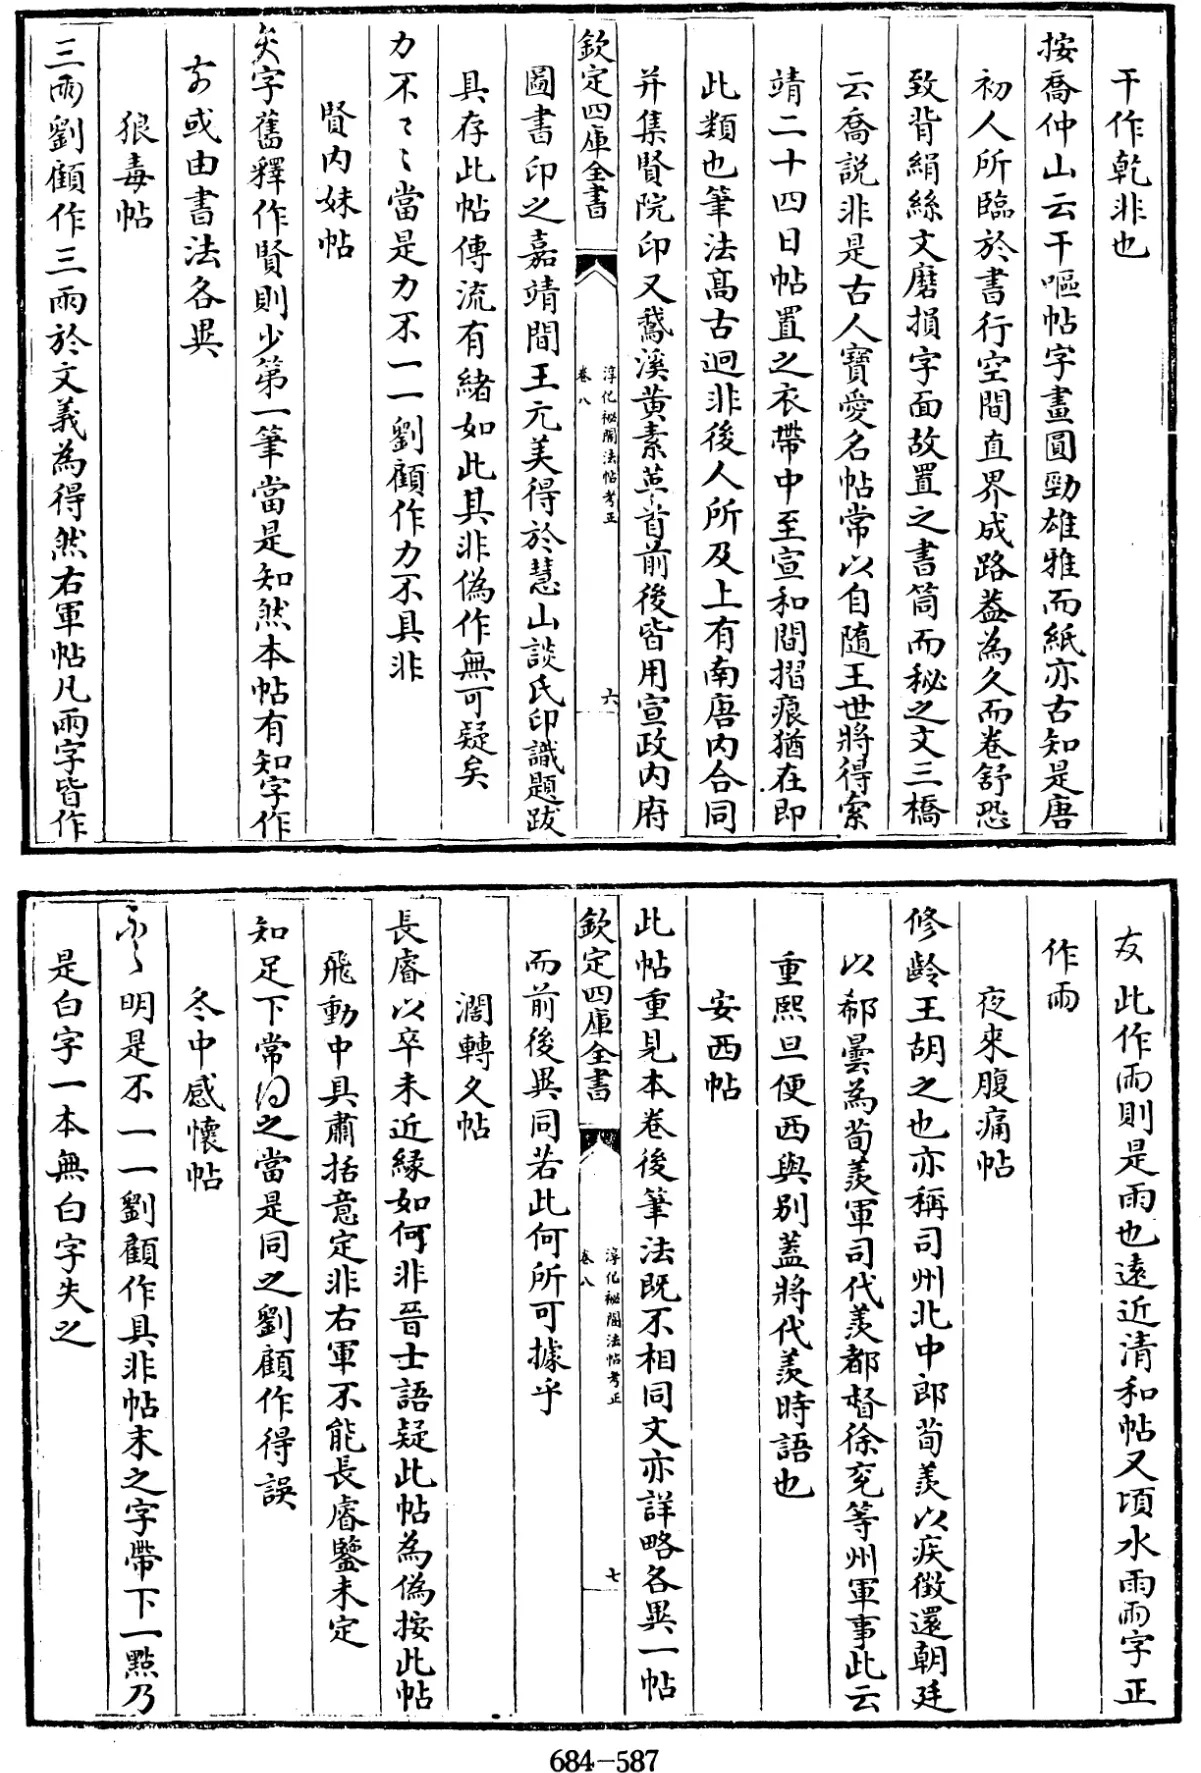 干作乾非也
按喬仲山云干嘔帖字畫圓勁雄雅而紙亦古知是唐
初人所臨於書行空間直界成路葢為久而卷舒恐
致背絹絲文磨損字面故置之書筒而秘之文三橋
云喬說非是古人寶愛名帖常以自隨王世將得索
靖二十四日帖置之衣帶中至宣和間摺痕猶在即
此類也筆法髙古迥非後人所及上有南唐内合同
并集賢院印又鵞溪黄素英首前後皆用宣政内府
欽定四庫全書
淳化秘閣法帖考正
卷八
六
圖書印之嘉靖間王元美得於慧山談氏印識題跋
具存此帖傳流有緒如此其非偽作無可疑矣
力不〻〻當是力不一一劉顧作力不具非
賢内妹帖
字舊釋作賢則少第一筆當是知然本帖有知字作
或由書法各異
狼毒帖
三雨劉顧作三兩於文義為得然右軍帖凡雨字皆作
此作雨則是雨也遠近清和帖又頃水雨雨字正
作雨
夜來腹痛帖
修齡王胡之也亦稱司州北中郎荀羡以疾徵還朝廷
以郗曇為荀羡軍司代羡都督徐兖等州軍事此云
重熙旦便西與别葢將代羡時語也
安西帖
此帖重見本卷後筆法既不相同文亦詳略各異一帖
欽定四庫全書
淳化秘閣法帖考正
卷八
七
而前後異同若此何所可據乎
濶轉久帖
長睿以卒未近緣如何非晉士語疑此帖為偽按此帖
飛動中具肅括意定非右軍不能長睿鑒未定
知足下常之當是同之劉顧作得誤
冬中感懷帖
明是不一一劉顧作具非帖末之字帶下一點乃
是白字一本無白字失之
684-587